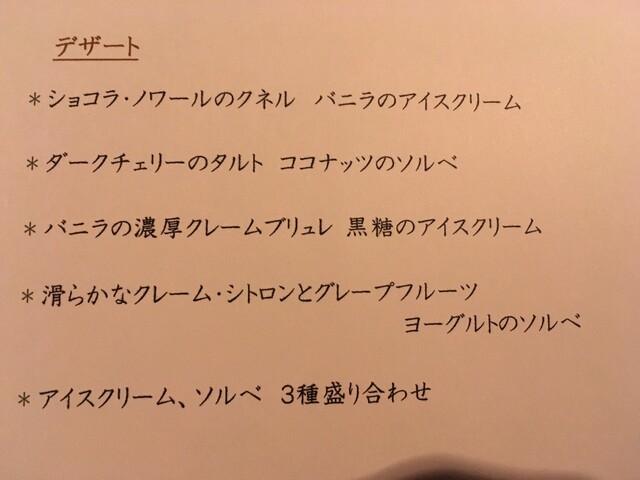 デザート
＊ショコラ・ノワールのクネル　バニラのアイスクリーム
＊ダークチェリーのタルト　ココナッツのソルベ
＊バニラの濃厚クレームブリュレ　黒糖のアイスクリーム
＊滑らかなクレーム・シトロンとグレープフルーツ
ヨーグルトのソルベ
＊アイスクリーム、ソルベ　３種盛り合わせ